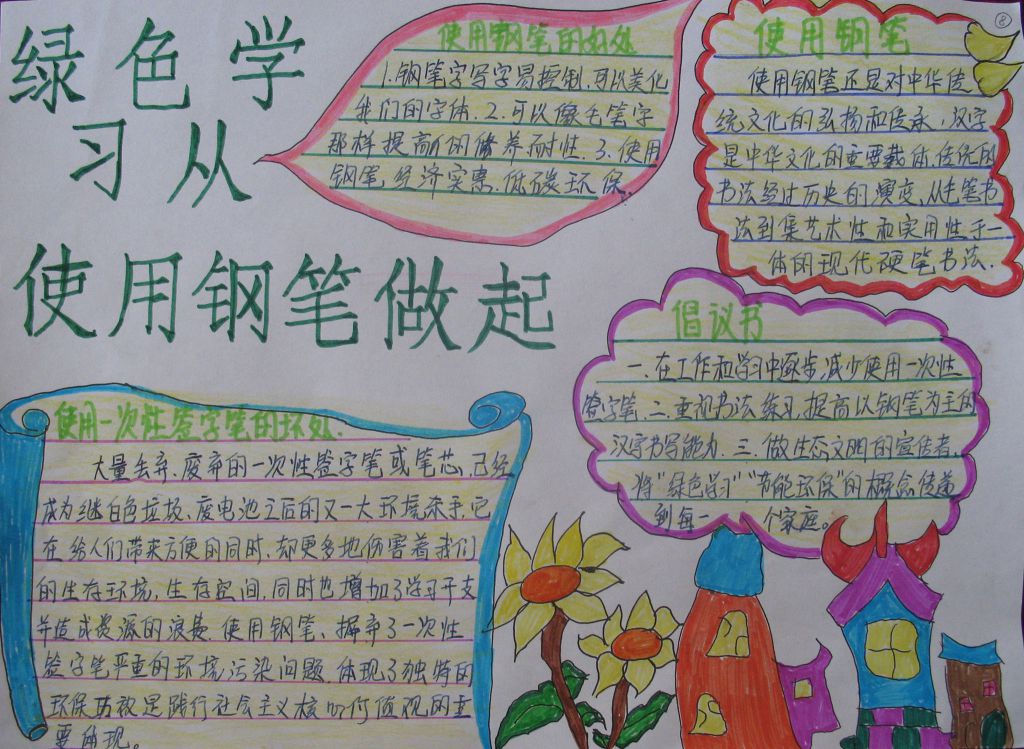 绿色学
习从
使用钢笔做起
使用钢笔的好处
1.钢笔字写字易控制.可以美化
我们的字体.2.可以像毛笔字
那样提高人的修养耐性.3.使用
钢笔经济实惠.低碳环保.
⑧
使用钢笔
使用钢笔还是对中华传
统文化的弘扬和传承,汉字
是中华文化的重要载体,传统的
书法经过历史的演变、从毛笔书
法到集艺术性和实用性于一
体的现代硬笔书法.
倡议书
一.在工作和学习中逐步减少使用一次性
签字笔.二.重视书法练习,提高以钢笔为主的
汉字书写能力.三.做生态文明的宣传者.
将"绿色学习""节能环保"的概念传递
到每一个家庭。
使用一次性签字笔的坏处.
大量丢弃、废弃的一次性签字笔或笔芯,已经
成为继白色垃圾、废电池之后的又一大环境杀手,它
在给人们带来方便的同时,却更多地伤害着我们
的生存环境,生存空间,同时也增加了学习开支
并造成资源的浪费.使用钢笔、摒弃了一次性
签字笔严重的环境污染问题.体现了独特的
环保功效是践行社会主义核心价值观的重
要体现。